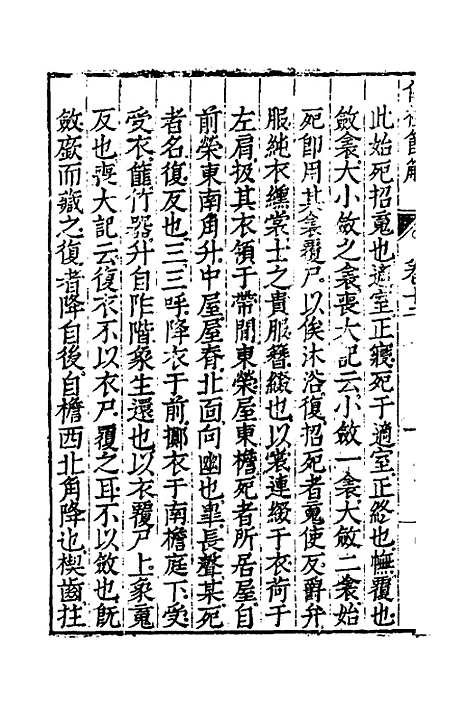 儀禮節解 卷十二
此始死招䰟也適室正寢死于適室正終也幠覆也
斂衾大小斂之衾喪大記云小斂一衾大斂二衾始
死卽用其衾覆尸以俟沐浴復招死者䰟使反爵弁
服純衣纁裳士之貴服簪綴也以裳連綴于衣荷于
左肩扱其衣領于帶間東榮屋東檐死者所居屋自
前榮東南角升中屋屋脊北面向幽也臯長聲某死
者名復反也三三呼降衣于前擲衣于南檐庭下受
受衣篚竹器升自阼階象生還也以衣覆尸上象䰟
反也喪大記云復衣不以衣尸覆之耳不以斂也旣
斂廞而藏之復者降自後自檐西北角降也楔齒拄